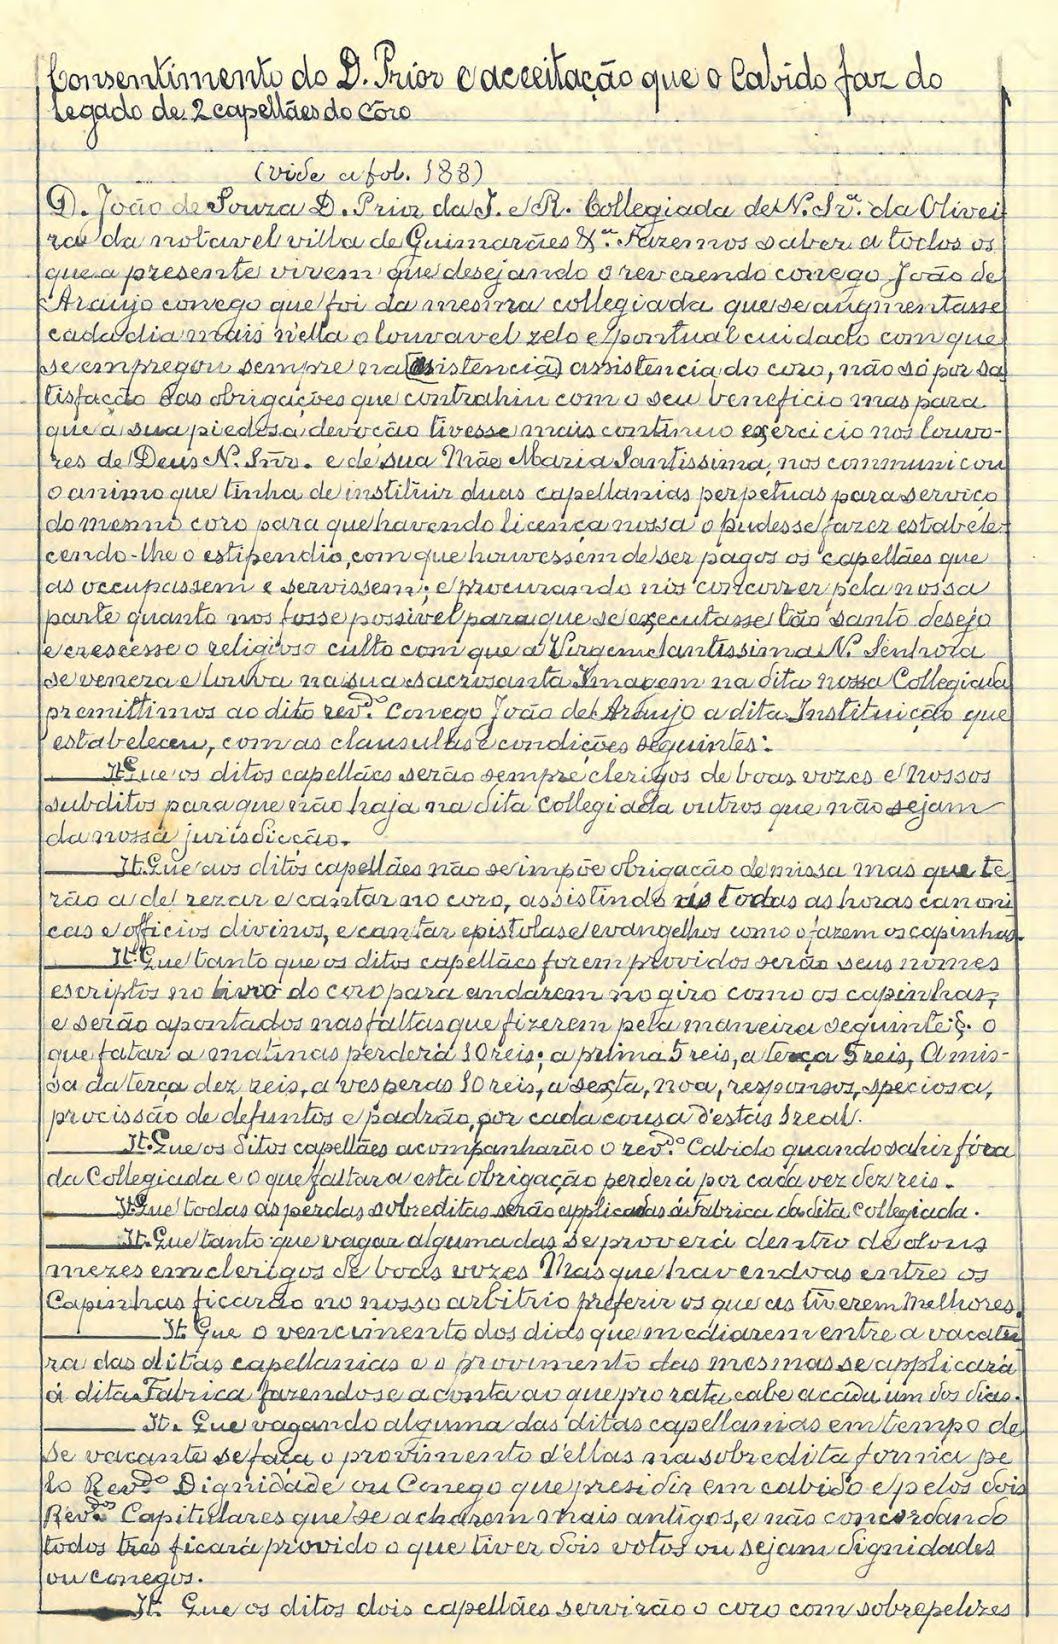 Consentimento do D. Prior e acceitação que o Cabido faz do
legado de 2 capellães do côro
(vide a fol. 188)
D. João de Souza D. Prior da I. e R. Collegiada de N. Srª. da Olivei
ra da notavel villa de Guimarães &ª. Fazemos saber a todos os
que a presente virem que desejando o reverendo conego João de
Araujo conego que foi da mesma collegiada que se augmentasse
cada dia mais n'ella o louvavel zelo e pontual cuidado com que
se empregou sempre na (asistencia) assistencia do coro, não só por sa
tisfação das obrigações que contrahiu com o seu beneficio mas para
que a sua piedosa devoção tivesse mais continuo exercicio nos louvo-
res de Deus N. Snr. e de sua Mãe Maria Santissima, nos communicou
o animo que tinha de instituir duas capellanias perpetuas para serviço
do mesmo coro para que havendo licença nossa o pudesse fazer estabele-
cendo-lhe o estipendio, com que houvessem de ser pagos os capellães que
as occupassem e servissem; e procurando nós concorrer pela nossa
parte quanto nos fosse possivel para que se executasse tão santo desejo
e crescesse o religioso culto com que a Virgem Santissima N. Senhora
se venera e louva na sua sacrosanta Imagem na dita nossa Collegiada
premittimos ao dito revdº. Conego João de Araujo a dita Instituição que
estabeleceu, com as clausulas e condições seguintes:
It. Que os ditos capellães serão sempre clerigos de boas vozes e nossos
subditos para que não haja na dita collegiada outros que não sejam
da nossa jurisdicção.
It. Que aos ditos capellães não se impõe obrigação de missa mas que te
rão a de rezar e cantar no coro, assistindo ás todas as horas canoni
cas e officios divinos, e cantar epistolas e evangelhos como o fazem os capinhas.
It. Que tanto que os ditos capellães forem providos serão seus nomes
escriptos no livro do coro para andarem no giro como os capinhas,
e serão apontados nas faltas que fizerem pela maneira seguinte §. o
que fatar a matinas perderá 10 reis; a prima 5 reis, a terça 5 reis, A mis-
sa da terça dez reis, a vesperas 10 reis, a sexta, noa, responsos, speciosa,
procissão de defuntos e padrão, por cada cousa d'estas 1 real.
It. Que os ditos capellães acompanharão o revdº. Cabido quando sahir fóra
da Collegiada e o que faltar a esta obrigação perderá por cada vez dez reis.
It. Que todas as perdas sobreditas serão applicadas á Fabrica da dita Collegiada.
It. Que tanto que vagar alguma das se proverá dentro de dous
mezes em clerigos de boas vozes Mas que havendo as entre os
Capinhas ficarão no nosso arbitrio preferir os que as tiverem melhores.
It. Que o vencimento dos dias que mediarem entre a vacatu
ra das ditas capellanias e o provimento das mesmas se applicará
á dita Fabrica fazendose a conta ao que pro rata cabe a cada um dos dias.
It. Que vagando alguma das ditas capellanias em tempo de
Se vacante se faça o provimento d'ellas na sobredita forma pe
lo Revdº Dignidade ou Conego que presidir em cabido e pelos dois
Revdºs Capitulares que se acharem mais antigos, e não concordando
todos tres ficará provido o que tiver dois votos ou sejam dignidades
ou conegos.
It. Que os ditos dois capellães servirão o coro com sobrepelizes